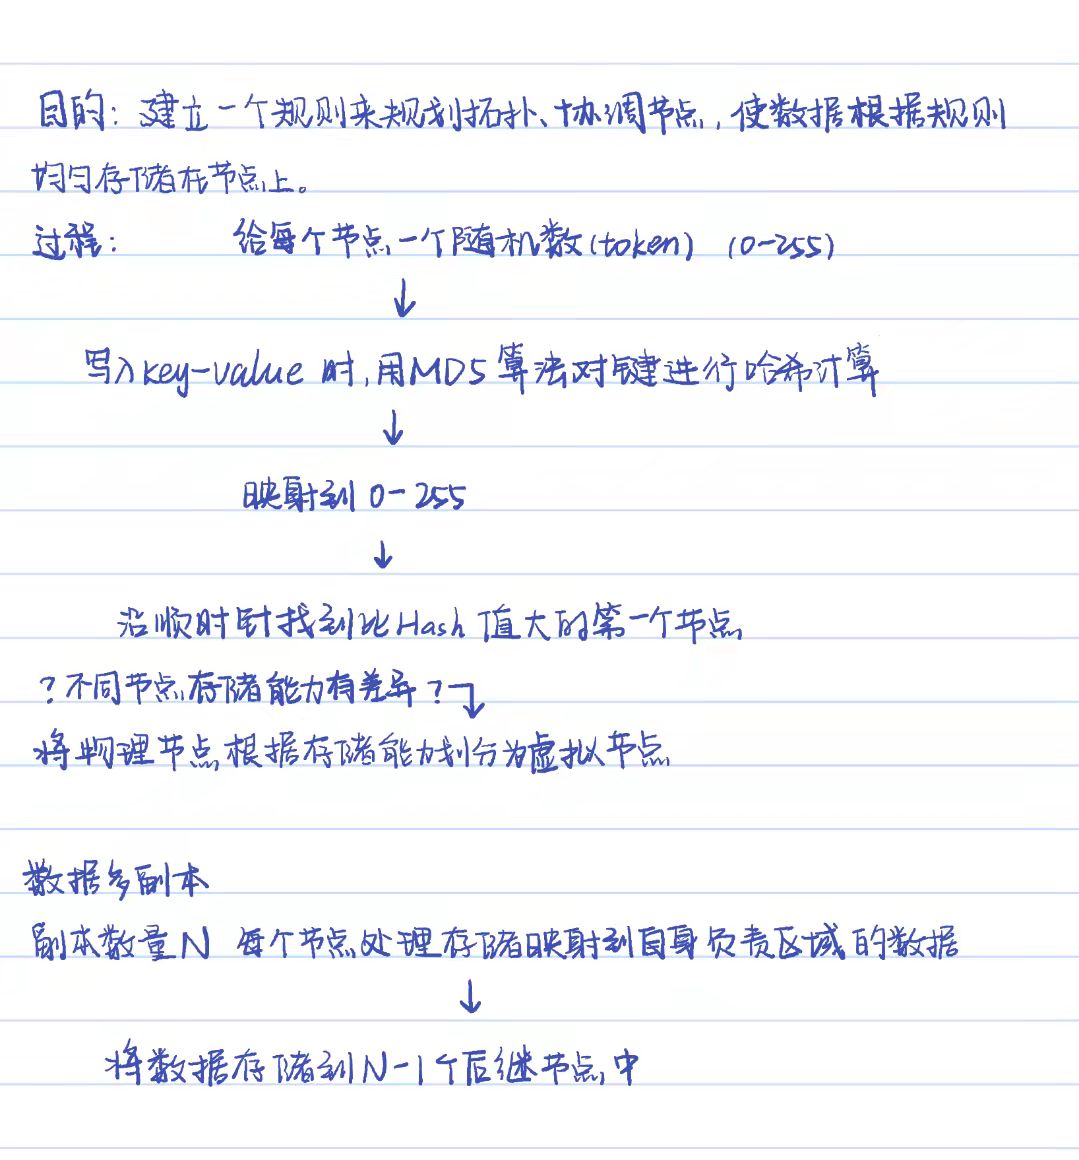 目的：建立一个规则来规划拓扑、协调节点，使数据根据规则
均匀存储在节点上。
过程： 给每个节点一个随机数(token) (0-255)
↓
写入key-value 时，用MD5算法对键进行哈希计算
↓
映射到 0-255
↓
沿顺时针找到比Hash值大的第一个节点
？不同节点存储能力有差异？
将物理节点根据存储能力划分为虚拟节点
数据多副本
副本数量N 每个节点处理存储映射到自身负责区域的数据
↓
将数据存储到N-1个后继节点中